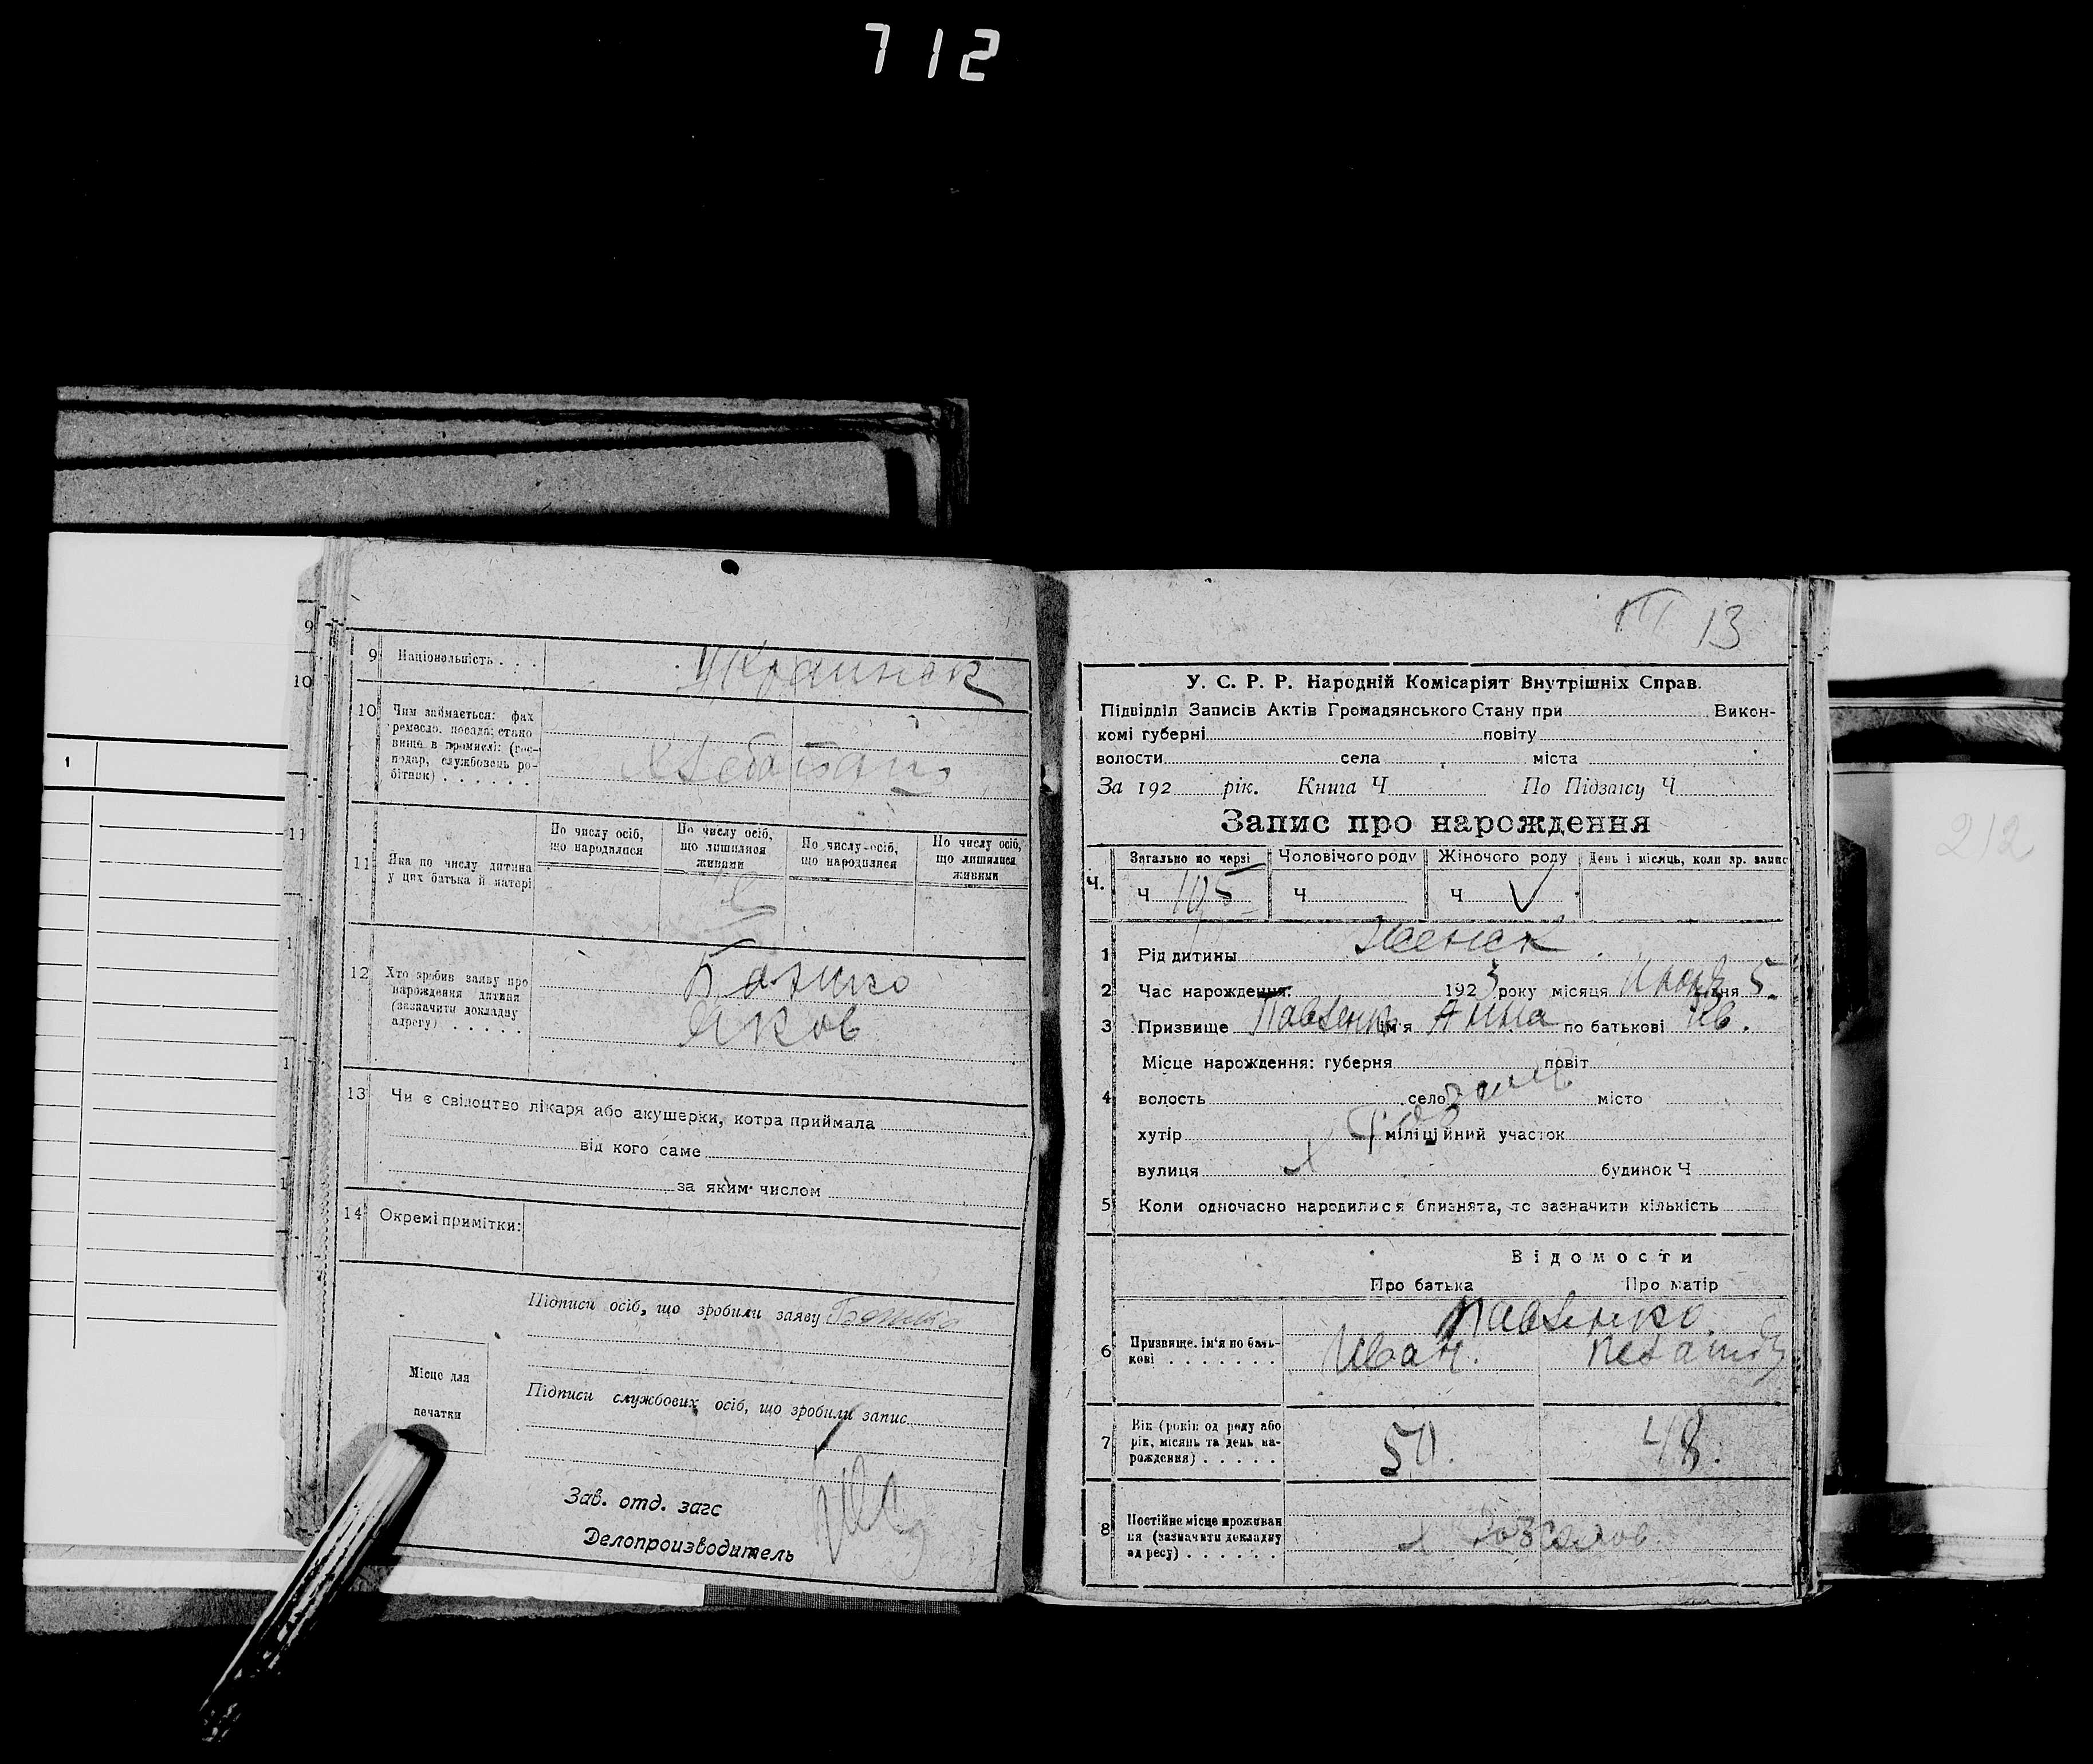 712
9 Національність . . .
Украинск
10 Чим займається: фах
ремесло, посада; стано
вище в промислі: (гос-
подар, службовець ро-
бітник) . . . . . .
11 Яка по числу дитина
у цих батька й матері
По числу осіб, що народилися
По числу осіб, що лишилися живими
По числу осіб, що народилися
По числу осіб, що лишилися живими
12 Хто зробив заяву про
нарождення дитини
(зазначити докладну
адресу) . . . . .
Яков
13 Чи є свідоцтво лікаря або акушерки, котра приймала
від кого саме
за яким числом
14 Окремі примітки:
Підписи осіб, що зробили заяву
Місце для
печатки
Підписи службових осіб, що зробили запис
Зав. отд. загс
Делопроизводитель
9
10
11
1
13
У. С. Р. Р. Народній Комісаріят Внутрішніх Справ.
Підвідділ Записів Актів Громадянського Стану при Викон-
комі губерні повіту
волости села міста
За 192 рік. Книга Ч По Підзаісу Ч
Запис про нарождення
Ч. Загально по черзі Чоловічого роду Жіночого роду День і місяць, коли зр. запис
Ч 105 Ч Ч V
1 Рід дитины Женск
2 Час нарождення 1923 року місяця дня 5
3 Призвище Павленко ім'я Анна по батькові Ив.
Місце нарождення: губерня повіт
4 волость село місто
хутір міліційний участок
вулиця будинок Ч
5 Коли одночасно народилися близнята, то зазначити кількість
Відомости
Про батька Про матір
6 Призвище, ім'я по бать-
кові . . . . . . .
Павленко
Иван.
7 Вік (років од роду або
рік, місяць та день на-
рождення) . . . . .
50. 48.
8 Постійне місце проживан
ня (зазначити докладну
адресу) . . . . . .
212